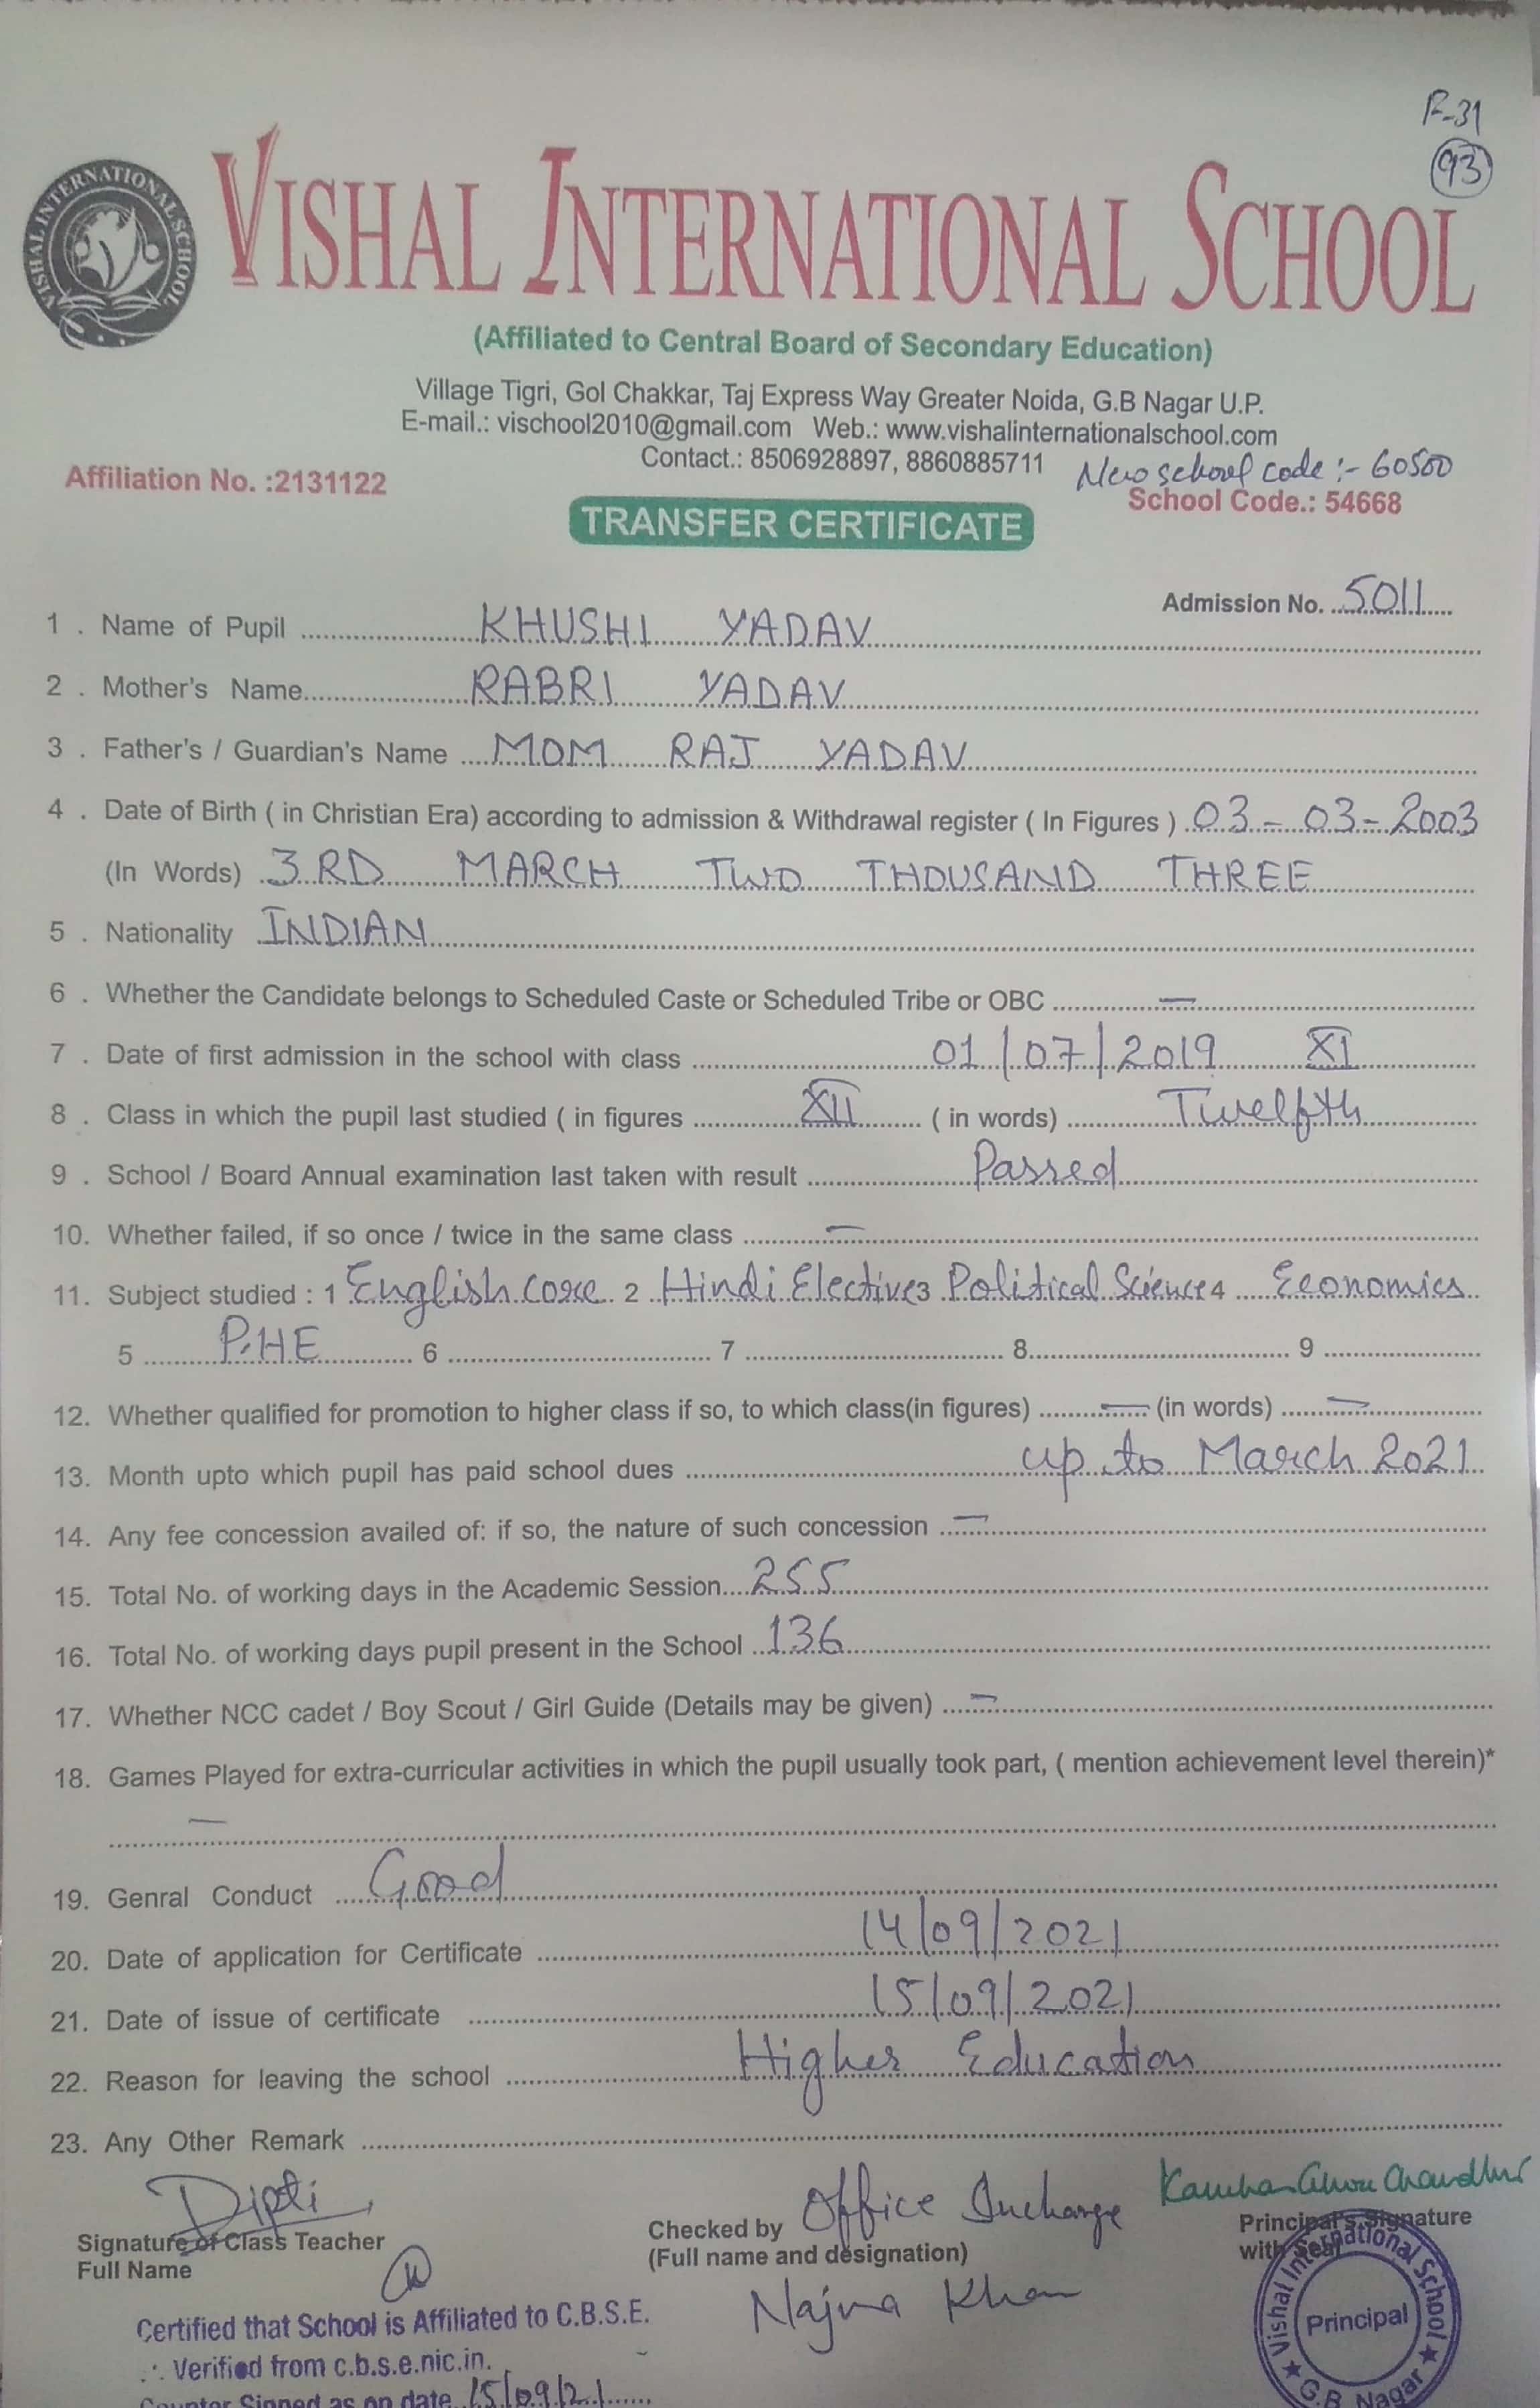 F-31
93
VISHAL INTERNATIONAL SCHOOL
VISHAL INTERNATIONAL SCHOOL
(Affiliated to Central Board of Secondary Education)
Village Tigri, Gol Chakkar, Taj Express Way Greater Noida, G.B Nagar U.P.
E-mail.: vischool2010@gmail.com Web.: www.vishalinternationalschool.com
Contact.: 8506928897, 8860885711 New school code :- 60500
Affiliation No. :2131122 School Code.: 54668
TRANSFER CERTIFICATE
Admission No. 5011
1 . Name of Pupil KHUSHI YADAV
2 . Mother's Name RABRI YADAV
3 . Father's / Guardian's Name MOM RAJ YADAV
4 . Date of Birth ( in Christian Era) according to admission & Withdrawal register ( In Figures ) 03-03-2003
(In Words) 3RD MARCH TWO THOUSAND THREE
5 . Nationality INDIAN
6 . Whether the Candidate belongs to Scheduled Caste or Scheduled Tribe or OBC —
7 . Date of first admission in the school with class 01/07/2019 XI
8 . Class in which the pupil last studied ( in figures XII ( in words) Twelfth
9 . School / Board Annual examination last taken with result Passed
10. Whether failed, if so once / twice in the same class —
11. Subject studied : 1 English Core 2 Hindi Elective 3 Political Science 4 Economics
5 P.HE 6 7 8 9
12. Whether qualified for promotion to higher class if so, to which class(in figures) — (in words) —
13. Month upto which pupil has paid school dues up to March 2021
14. Any fee concession availed of: if so, the nature of such concession —
15. Total No. of working days in the Academic Session 255
16. Total No. of working days pupil present in the School 136
17. Whether NCC cadet / Boy Scout / Girl Guide (Details may be given) —
18. Games Played for extra-curricular activities in which the pupil usually took part, ( mention achievement level therein)*
—
19. Genral Conduct Good
20. Date of application for Certificate 14/09/2021
21. Date of issue of certificate 15/09/2021
22. Reason for leaving the school Higher Education
23. Any Other Remark
Dipti
Signature of Class Teacher
Full Name
Checked by Office Incharge
(Full name and designation)
Najma Khan
Principal's Signature
with Seal
Vishal International School
Principal
G.B. Nagar
Certified that School is Affiliated to C.B.S.E.
∴ Verified from c.b.s.e.nic.in.
Counter Signed as on date 15/09/21